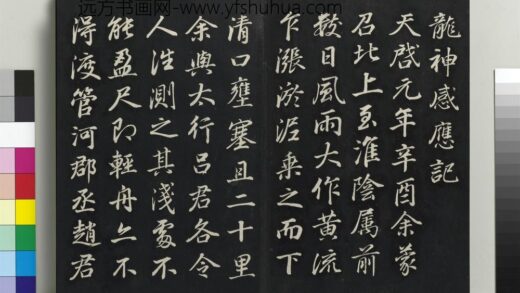 远方书画网-www.yfshuhua.com
龍神感應記
天啓元年辛酉余蒙
召北上至淮陰属前
数日風雨大作黄流
乍漲淤泥乗之而下
清口壅塞且二十里
余與太行吕君各令
人往測之其浅處不
能盈尺即輕舟亦不
得渡管河郡丞趙君